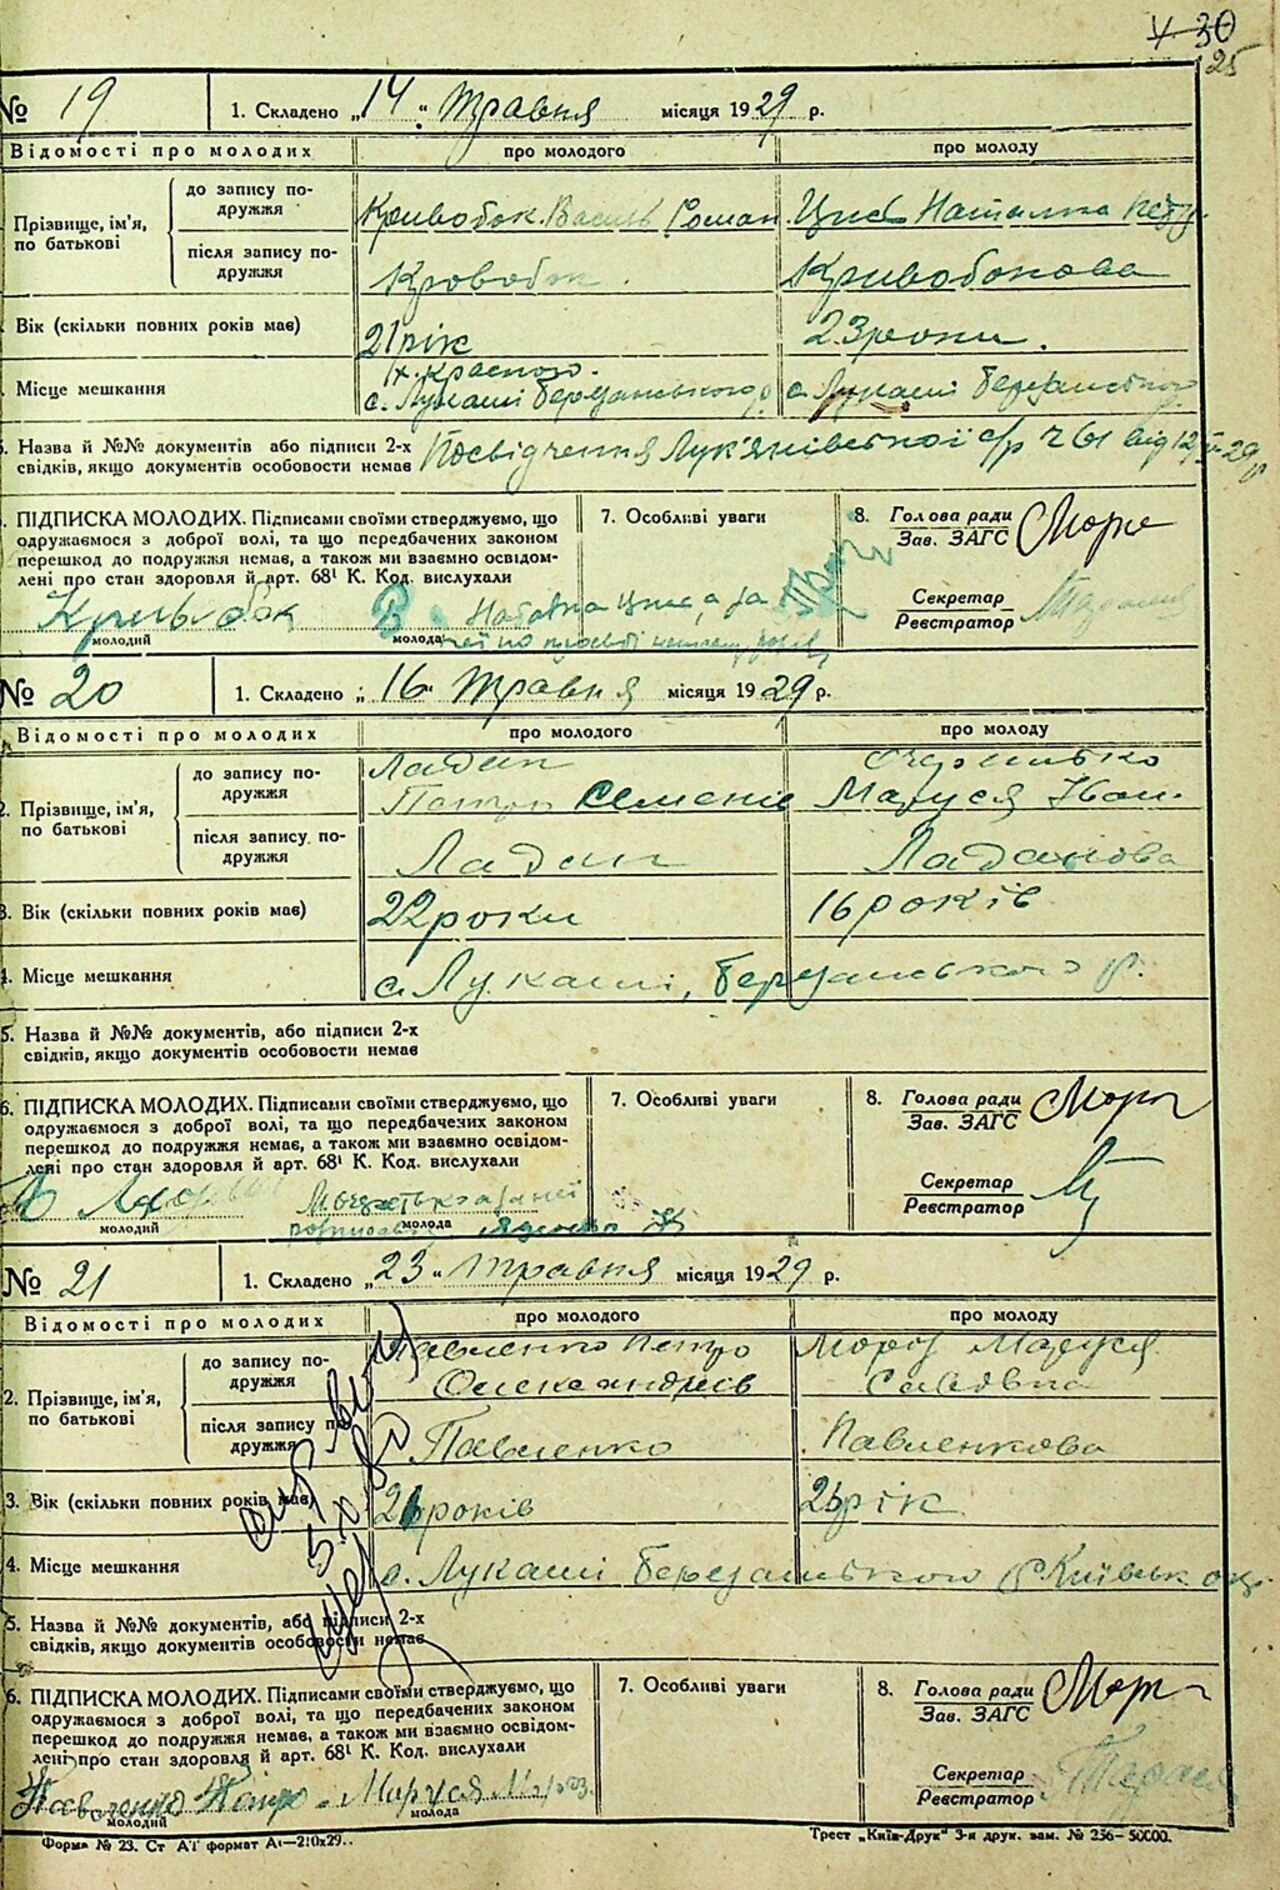 30
25
№ 19 1. Складено „14“ Травня місяця 1929 р.
Відомості про молодих про молодого про молоду
Прізвище, ім'я, по батькові
до запису подружжя Кривобок Василь Роман. Цис Наталка Петр.
після запису подружжя Кровобок Кривобокова
Вік (скільки повних років має) 21 рік 23 роки.
х. Красного.
Місце мешкання с. Лукаші Березанського р с. Лукаші Березанського
Назва й №№ документів або підписи 2-х
свідків, якщо документів особовости немає Посвідчення Лук'янівської с/р ч 61 від 12/V-29 р
ПІДПИСКА МОЛОДИХ. Підписами своїми стверджуємо, що
одружаємося з доброї волі, та що передбачених законом
перешкод до подружжя немає, а також ми взаємно освідом-
лені про стан здоровля й арт. 68¹ К. Код. вислухали
7. Особливі уваги
8. Голова ради
Зав. ЗАГС Мороз
Секретар
Реєстратор
Кривобок В
молодий молода
№ 20 1. Складено „16“ Травня місяця 1929 р.
Відомості про молодих про молодого про молоду
2. Прізвище, ім'я, по батькові
до запису подружжя Ладан
Петро Семенів Маруся Іван.
після запису подружжя Ладан Ладанова
3. Вік (скільки повних років має) 22 роки 16 років
4. Місце мешкання с. Лукаші, Березанського р.
5. Назва й №№ документів, або підписи 2-х
свідків, якщо документів особовости немає
6. ПІДПИСКА МОЛОДИХ. Підписами своїми стверджуємо, що
одружаємося з доброї волі, та що передбачених законом
перешкод до подружжя немає, а також ми взаємно освідом-
лені про стан здоровля й арт. 68¹ К. Код. вислухали
7. Особливі уваги
8. Голова ради
Зав. ЗАГС Мороз
Секретар
Реєстратор
молодий молода
№ 21 1. Складено „23“ Травня місяця 1929 р.
Відомості про молодих про молодого про молоду
2. Прізвище, ім'я, по батькові
до запису подружжя Павленко Петро Мороз Маруся
Олександрів Савовна
після запису подружжя Павленко Павленкова
3. Вік (скільки повних років має) років рік
4. Місце мешкання с. Лукаші Березанського р. Київськ. окр.
5. Назва й №№ документів, або підписи 2-х
свідків, якщо документів особовости немає
6. ПІДПИСКА МОЛОДИХ. Підписами своїми стверджуємо, що
одружаємося з доброї волі, та що передбачених законом
перешкод до подружжя немає, а також ми взаємно освідом-
лені про стан здоровля й арт. 68¹ К. Код. вислухали
7. Особливі уваги
8. Голова ради
Зав. ЗАГС Мороз
Секретар
Реєстратор
Павленко Петро Маруся Мороз.
молодий молода
Форма № 23. Ст АТ формат А₄—210х29.. Трест „Київ-Друк“ 3-я друк. зам. № 256—50000.